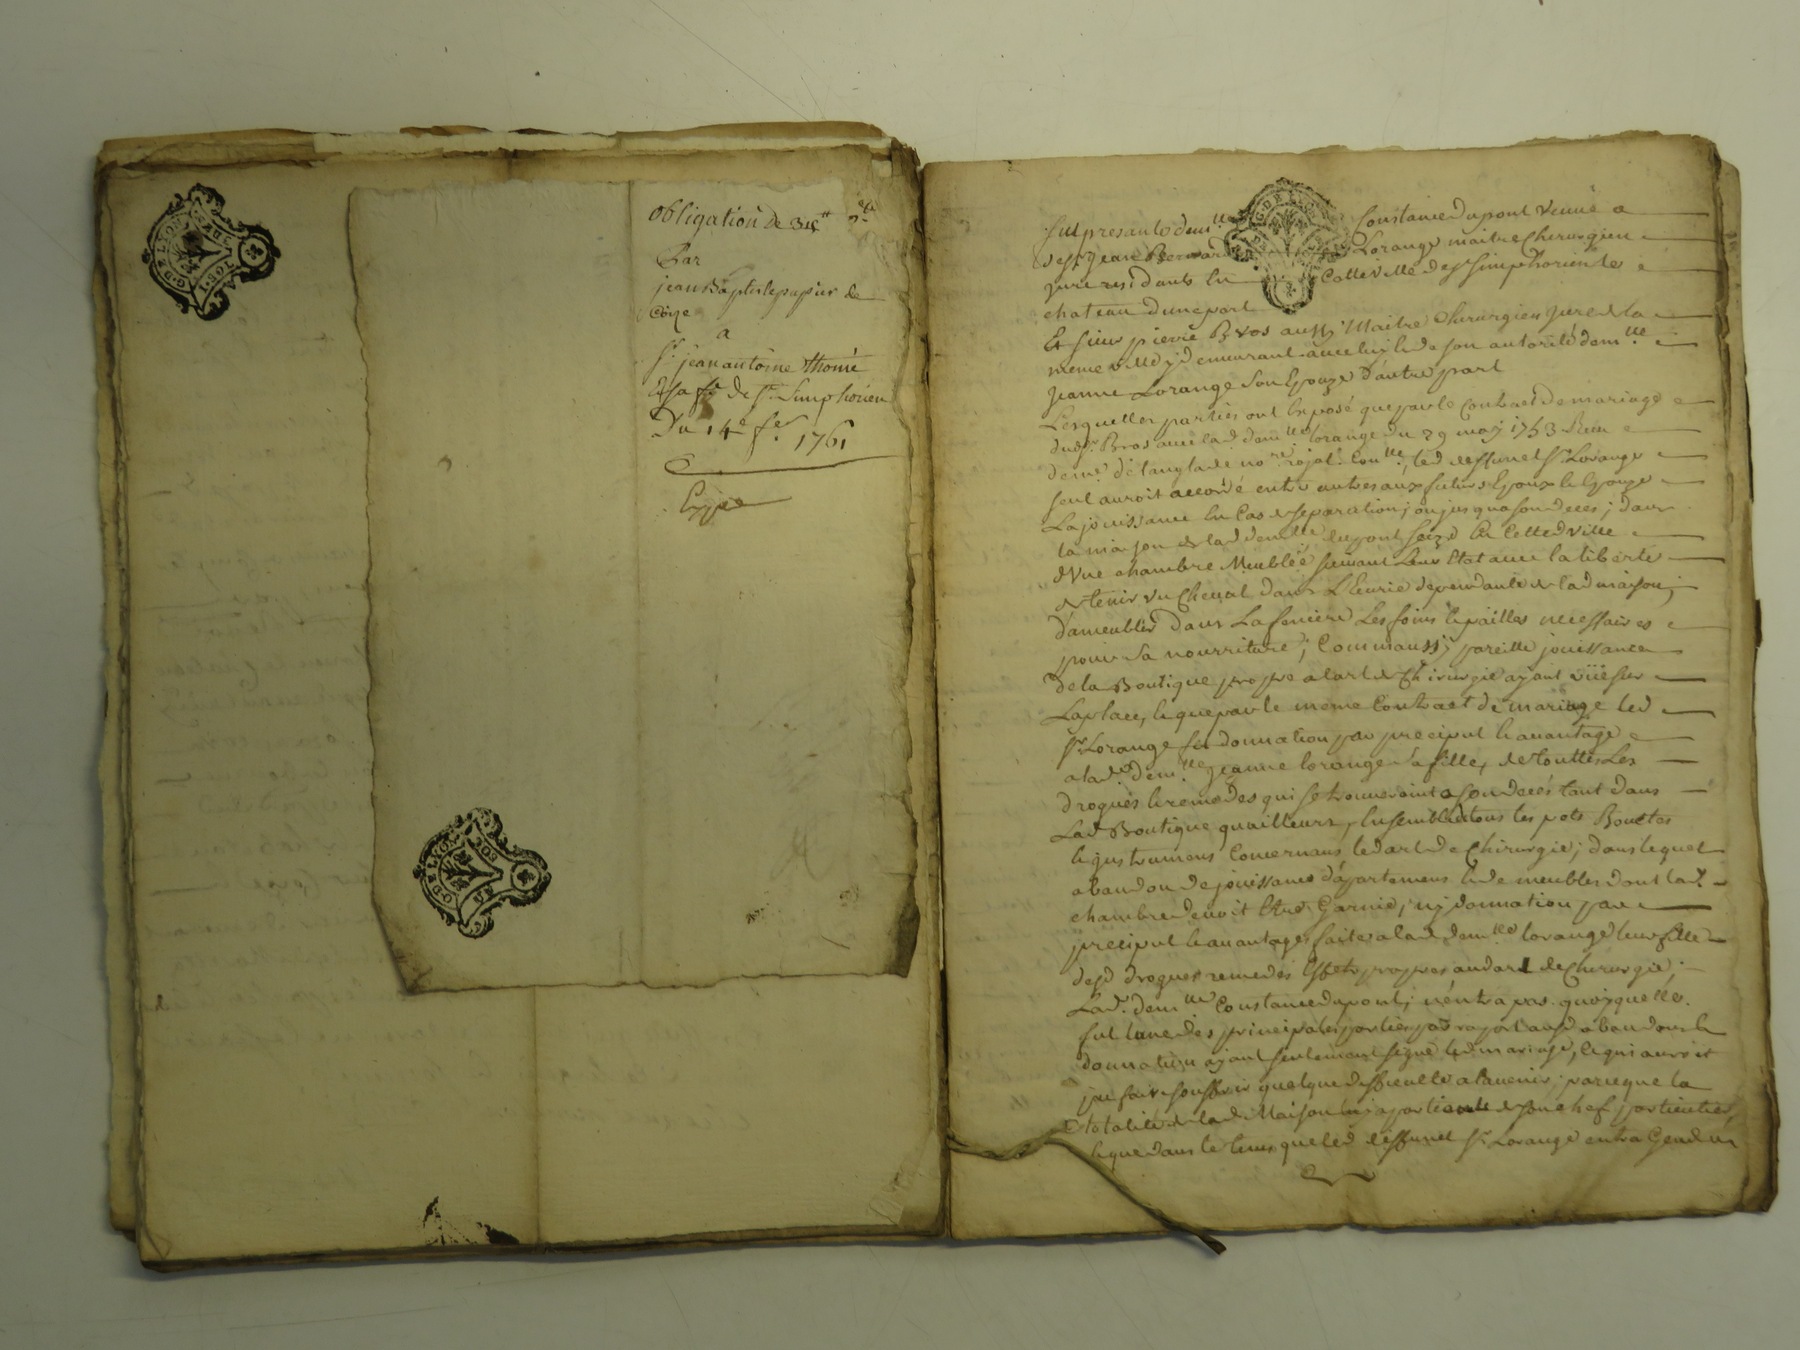 obligation de
Par
jean Baptiste papier de
Coize
a
Sr. jean antoine thomé
Et sa fe. de St. Simphorien
Du 14e fer. 1761
Expe
G. DE LYON
1. SOL
G. DE LYON
SOL
fut presante demlle Constance dupont veuve a
sr jean Bernard Lorange maitre Chirurgien
juré residants en Cette ville de st simphorien le
chateau d'une part
Et sieur pierre Bros aussy Maitre Chirurgien juré de la
meme ville y demeurant avec luy et de son autorité demlle
jeanne Lorange Son Epouze d'autre part
Lesquelles parties ont Exposé que par le Contract de mariage
dud sr. Bros avec lad demlle lorange du 29 may 1753 Recu
de me. de langlade nore. royal, led deffunct sr. Lorange
seul auroit accordé entre autres aux futurs Epoux
La jouissance En Cas de separation, ou jusqu'a son deces, dans
la maison de lad demlle dupont scize En Cette d ville
d'Une chambre Meublée suivant Leur Etat avec la liberté
de tenir un Cheval dans L'Ecurie dependante de lad maison,
d'ameubler dans La feniere Les foins et pailles necessaires
pour sa nourriture; Comm'aussy pareille jouissance
de la Boutique propre a l'art de Chirurgie ayant vüe sur
La place, et que par le meme Contract de mariage led
sr. Lorange fit donnation par preciput et avantage
a lad. demlle jeanne lorange sa fille, de touttes Les
drogues et remedes qui se trouveroint a son decés tant dans
Lad Boutique qu'ailleurs, Ensemble de tous les pots Bouettes
et jnstrumens Concernans led art de Chirurgie; dans lequel
abandon de jouissance d'apartemens et de meubles dont lad.
chambre devoit Etre Garnie, ny donnation par
preciput et avantages faite a lad demlle lorange leur fille
desd drogues remedes Effets propres aud art de Chirurgie;
Lad. demlle Constance dupont, n'entra pas quoyqu'elle
fut l'une des principales parties par raport aud abandon et
donnation ayant seulement signé led mariage, ce qui auroit
pu faire souffrir quelque difficulté a l'avenir, parceque la
totalité de lad Maison luy apartient de son chef particulier,
et que dans le tems que led deffunct sr. Lorange entra Gendre